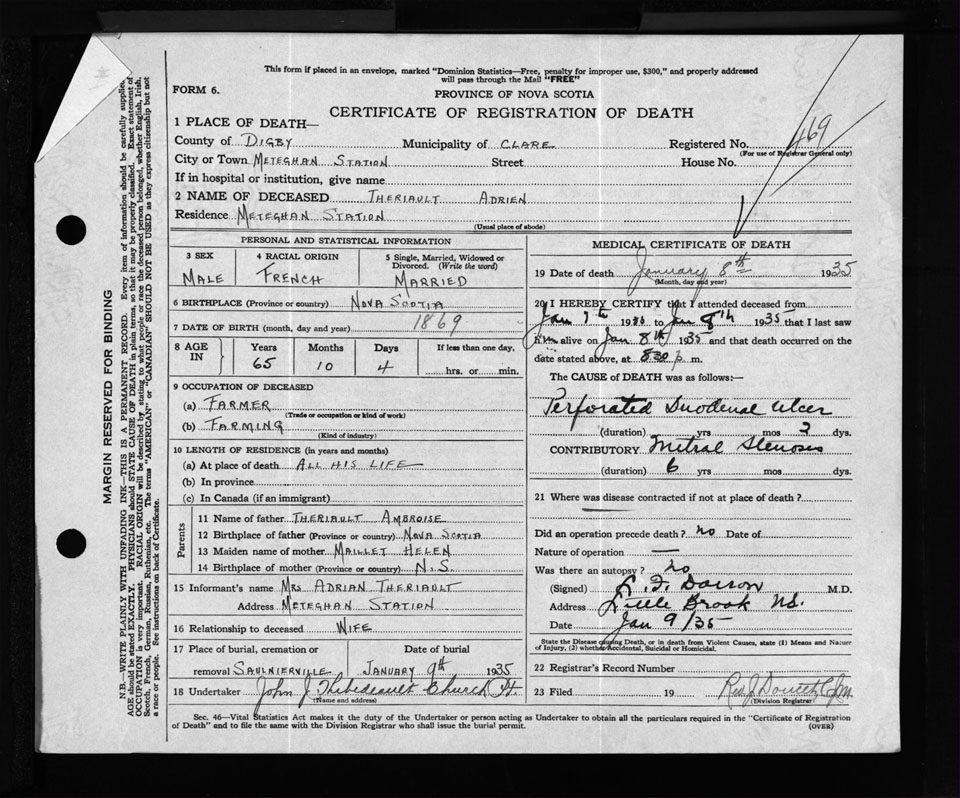 This form if placed in an envelope, marked "Dominion Statistics—Free, penalty for improper use, $300," and properly addressed
will pass through the Mail "FREE"
FORM 6.
PROVINCE OF NOVA SCOTIA
CERTIFICATE OF REGISTRATION OF DEATH
1 PLACE OF DEATH—
County of DIGBY Municipality of CLARE Registered No. 469
(For use of Registrar General only)
City or Town METEGHAN STATION Street House No.
If in hospital or institution, give name
2 NAME OF DECEASED THERIAULT ADRIEN
Residence METEGHAN STATION
(Usual place of abode)
PERSONAL AND STATISTICAL INFORMATION
3 SEX 4 RACIAL ORIGIN 5 Single, Married, Widowed or
Divorced. (Write the word)
MALE FRENCH MARRIED
6 BIRTHPLACE (Province or country) NOVA SCOTIA
7 DATE OF BIRTH (month, day and year) 1869
8 AGE IN Years Months Days If less than one day,
65 10 4 hrs. or min.
9 OCCUPATION OF DECEASED
(a) FARMER
(Trade or occupation or kind of work)
(b) FARMING
(Kind of industry)
10 LENGTH OF RESIDENCE (in years and months)
(a) At place of death ALL HIS LIFE
(b) In province
(c) In Canada (if an immigrant)
Parents
11 Name of father THERIAULT AMBROISE
12 Birthplace of father (Province or country) NOVA SCOTIA
13 Maiden name of mother MAILLET HELEN
14 Birthplace of mother (Province or country) N.S.
15 Informant's name MRS ADRIAN THERIAULT
Address METEGHAN STATION
16 Relationship to deceased WIFE
17 Place of burial, cremation or Date of burial
removal SAULNIERVILLE JANUARY 9th 1935
18 Undertaker John J Thibedeault Church Pt.
(Name and address)
MEDICAL CERTIFICATE OF DEATH
19 Date of death January 8th 1935
(Month, day and year)
20 I HEREBY CERTIFY that I attended deceased from
Jan 7th 1935 to Jan 8th 1935 that I last saw
him alive on Jan 8th 1935 and that death occurred on the
date stated above, at 830 p. m.
The CAUSE of DEATH was as follows:—
Perforated Duodenal Ulcer
(duration) yrs mos 2 dys.
CONTRIBUTORY Mitral Stenosis
(duration) 6 yrs mos dys.
21 Where was disease contracted if not at place of death?
Did an operation precede death? no Date of
Nature of operation —
Was there an autopsy? no
(Signed) M.D.
Address Little Brook NS.
Date Jan 9/35
State the Disease causing Death, or in death from Violent Causes, state (1) Means and Nature
of Injury, (2) whether Accidental, Suicidal or Homicidal.
22 Registrar's Record Number
23 Filed 19
(Division Registrar)
Sec. 46—Vital Statistics Act makes it the duty of the Undertaker or person acting as Undertaker to obtain all the particulars required in the "Certificate of Registration
of Death" and to file the same with the Division Registrar who shall issue the burial permit. (OVER)
MARGIN RESERVED FOR BINDING
N.B.—WRITE PLAINLY WITH UNFADING INK—THIS IS A PERMANENT RECORD. Every item of information should be carefully supplied.
AGE should be stated EXACTLY. PHYSICIANS should STATE CAUSE OF DEATH in plain terms, so that it may be properly classified. Exact statement of
OCCUPATION is very important. RACIAL ORIGIN will be described by stating to what people or race the deceased person belonged, whether English, Irish,
Scotch, French, German, Russian, Ruthenian, etc. The terms "AMERICAN" or "CANADIAN" SHOULD NOT BE USED as they express citizenship but not
a race or people. See instructions on back of Certificate.